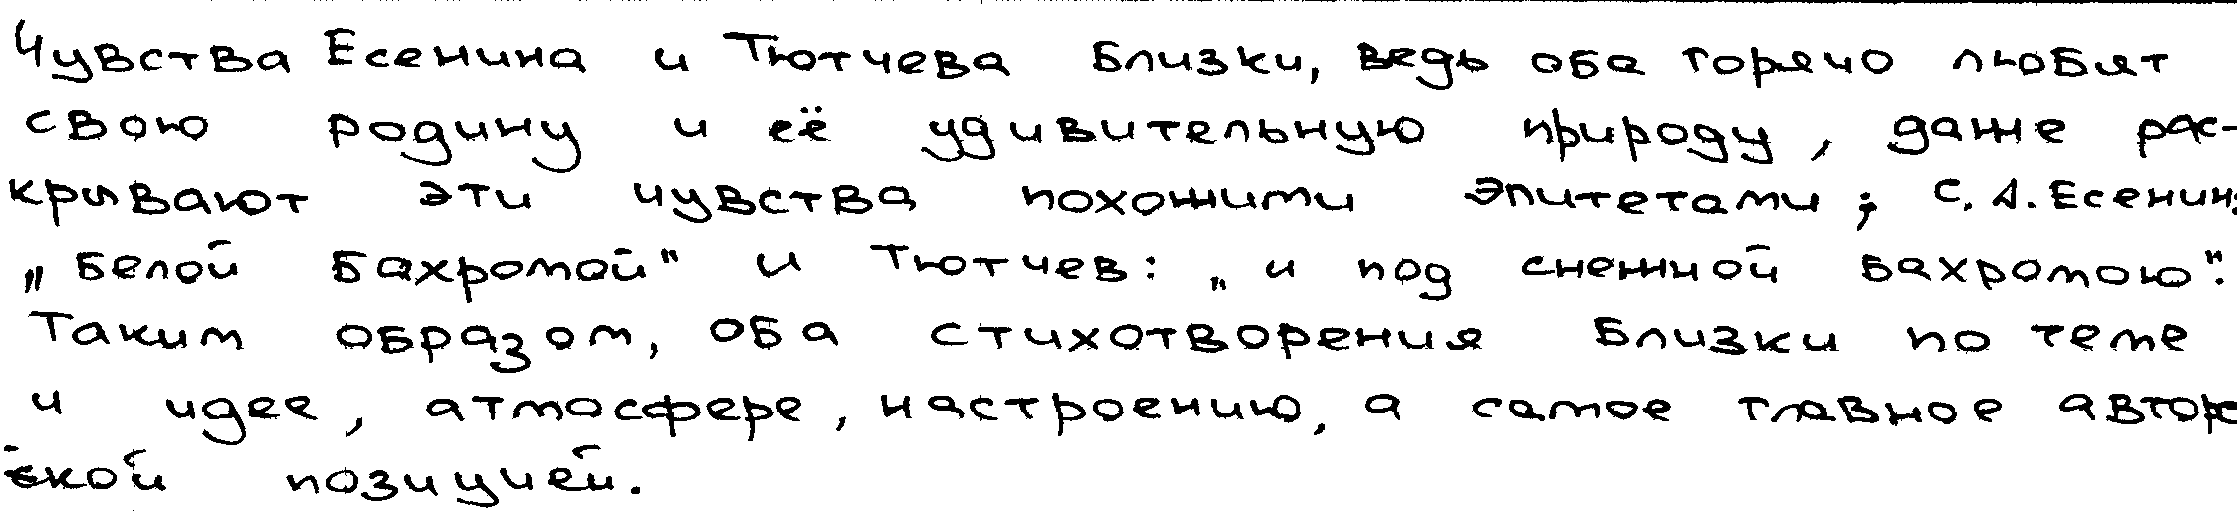 Чувства Есенина и Тютчева близки, ведь оба горячо любят
свою родину и её удивительную природу, даже рас-
крывают эти чувства похожими эпитетами; С. А. Есенин:
„белой бахромой" и Тютчев: „и под снежной бахромою".
Таким образом, оба стихотворения близки по теме
и идее, атмосфере, настроению, а самое главное автор
ской позицией.